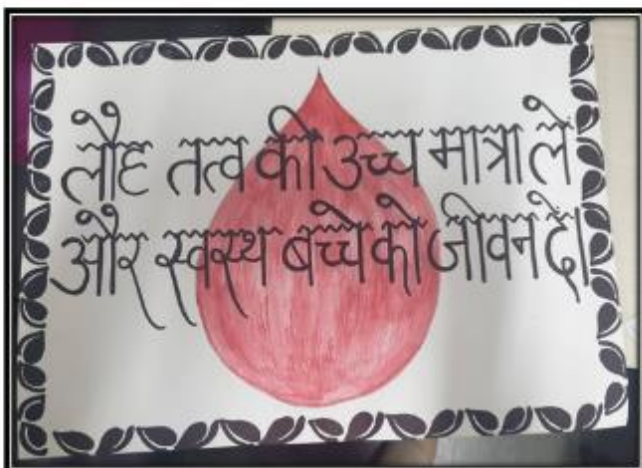 लौह तत्व की उच्च मात्रा ले
और स्वस्थ बच्चे को जीवन दे।